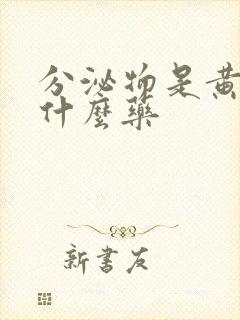 分泌物是黄
什麼藥
新書友